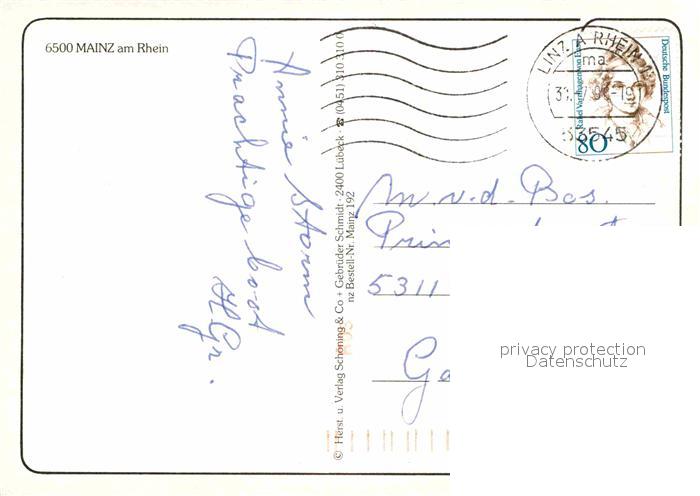 6500 MAINZ am Rhein
Annie Storm
Prachtige boot
HGr.
© Herst. u. Verlag Schöning & Co + Gebrüder Schmidt · 2400 Lübeck · ☎ (0451) 310 310 0
nz Bestell-Nr. Mainz 192
LINZ A RHEIN
ma
-19
53545
Deutsche Bundespost
80
M. v. d. Bos.
Prin
5311
Ga
privacy protection
Datenschutz